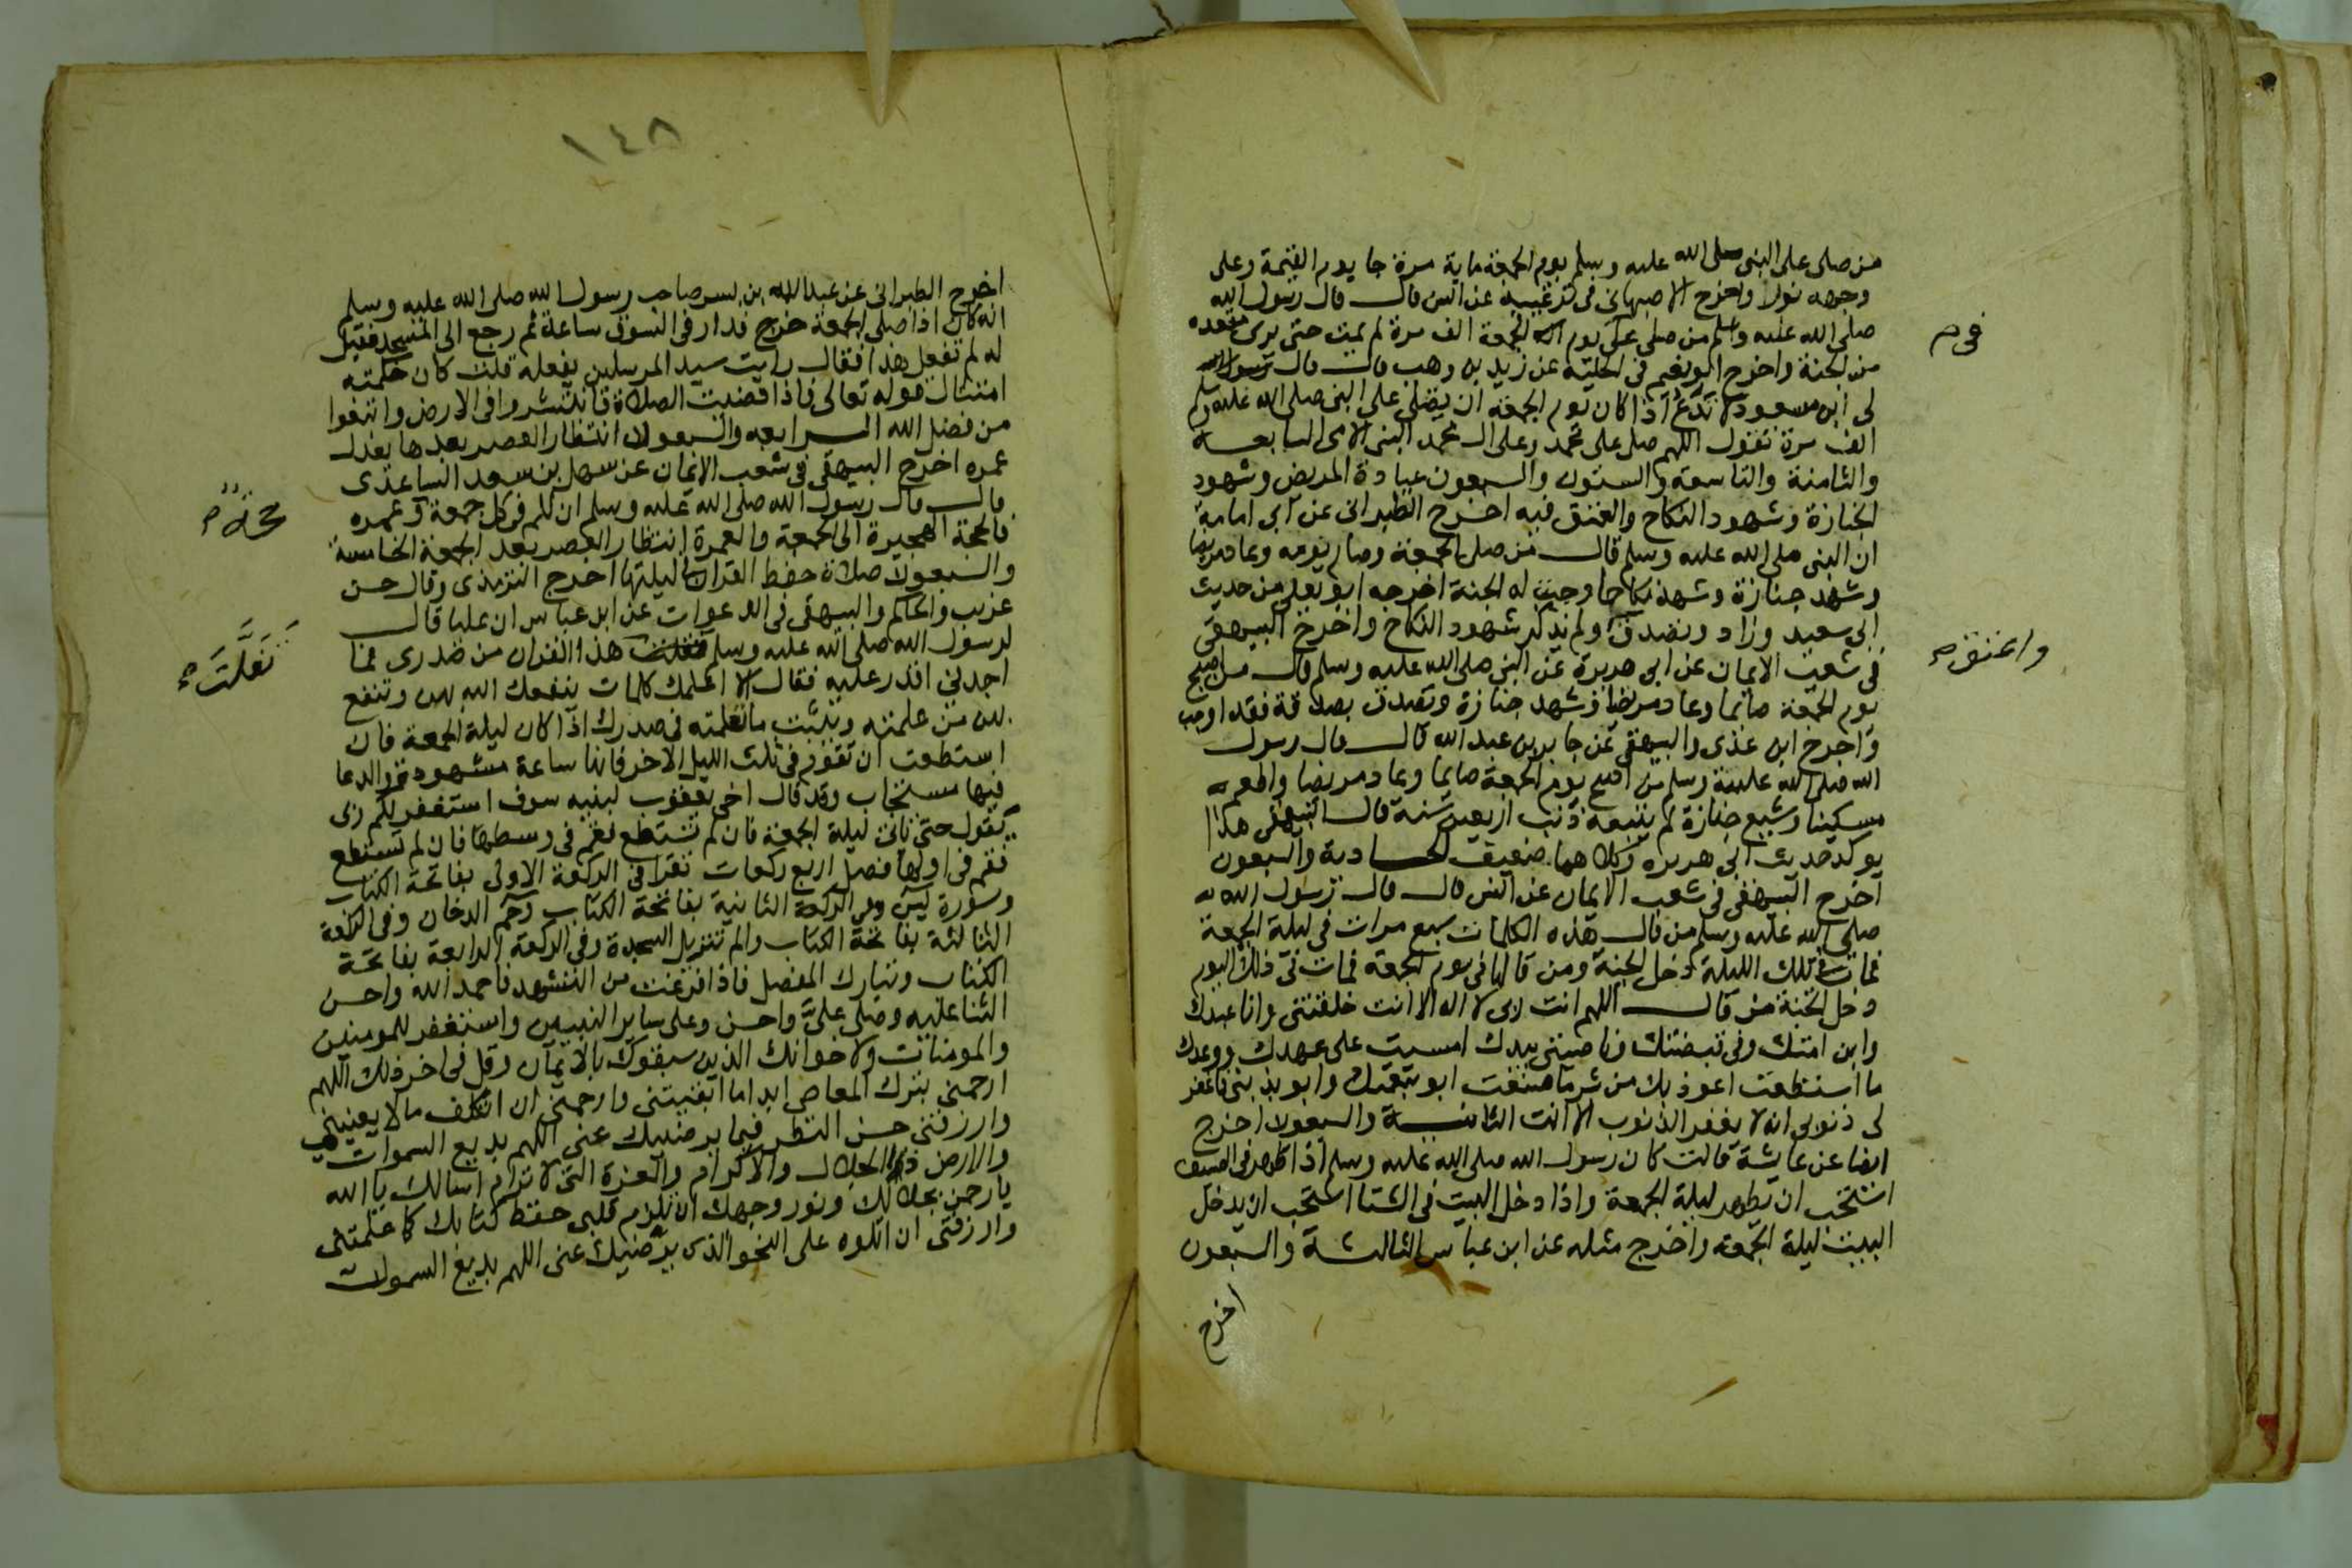 من صلى على النبى صلى الله عليه وسلم يوم الجمعة ماية مرة جا يوم القيمة وعلى
وجهه نور واخرج الاصبهانى فى ترغيبه عن انس قال قال رسول الله
صلى الله عليه وسلم من صلى على يوم الجمعة الف مرة لم يمت حتى يرى مقعده
فى م
من الجنة واخرج ابو نعيم فى الحلية عن زيد بن وهب قال قال
لى ابن مسعود لا تدع اذا كان يوم الجمعة ان تصلى على النبى صلى الله عليه وسلم
الف مرة تقول اللهم صل على محمد وعلى ال محمد النبى الامى السابعة
والثامنة والتاسعة والستون والسبعون عيادة المريض وشهود
الجنازة وشهود النكاح والعتق فيه اخرج الطبرانى عن ابى امامة
ان النبى صلى الله عليه وسلم قال من صلى الجمعة وصام يومه وعاد مريضا
وشهد جنازة وشهد نكاحا وجبت له الجنة اخرجه ابو يعلى من حديث
ابى سعيد وزاد وتصدق ولم يذكر شهود النكاح واخرج البيهقى
واعتق م
فى شعب الايمان عن ابى هريرة عن النبى صلى الله عليه وسلم قال من اصبح
يوم الجمعة صايما وعاد مريضا وشهد جنازة وتصدق بصدقة فقد اوجب
واخرج ابن عدى والبيهقى عن جابر بن عبد الله قال قال رسول
الله صلى الله عليه وسلم من اصبح يوم الجمعة صايما وعاد مريضا واطعم
مسكينا وشيع جنازة لم يتبعه ذنب اربعين سنة قال البيهقى هذا
يوكد حديث ابى هريره وكلاهما ضعيف الحادية والسبعون
اخرج البيهقى فى شعب الايمان عن انس قال قال رسول الله
صلى الله عليه وسلم من قال هذه الكلمات سبع مرات فى ليلة الجمعة
فمات فى تلك الليلة دخل الجنة ومن قالها فى يوم الجمعة فمات فى ذلك اليوم
دخل الجنة من قال اللهم انت ربى لا اله الا انت خلقتنى وانا عبدك
وابن امتك وفى قبضتك وناصيتى بيدك امسيت على عهدك ووعدك
ما استطعت اعوذ بك من شر ما صنعت ابو بنعمتك وابو بذنبى فاغفر
لى ذنوبى انه لا يغفر الذنوب الا انت الثانية والسبعون اخرج
ايضا عن عايشة قالت كان رسول الله صلى الله عليه وسلم اذا ظهر فى الصيف
استحب ان يظهر ليلة الجمعة واذا دخل البيت فى الشتا استحب ان يدخل
البيت ليلة الجمعه واخرج مثله عن ابن عباس الثالثة والسبعون
اخرج
١٤٨
اخرج الطبرانى عن عبد الله بن بسر صاحب رسول الله صلى الله عليه وسلم
انه كان اذا صلى الجمعة خرج فدار فى السوق ساعة ثم رجع الى المسجد فقيل
له لم تفعل هذا فقال رايت سيد المرسلين يفعله قلت كان حكمته
امتثال قوله تعالى فاذا قضيت الصلاة فانتشروا فى الارض وابتغوا
من فضل الله الرابعه والسبعون انتظار العصر بعدها يعدل
عمره اخرج البيهقى فى شعب الايمان عن سهل بن سعد الساعدى
قال قال رسول الله صلى الله عليه وسلم ان لكم فى كل جمعة وعمره
حجة م
فالحجة الهجيرة الى الجمعة والعمرة انتظار العصر بعد الجمعة الخامسة
والسبعون صلاة حفظ القران ليلتها اخرج الترمذى وقال حسن
غريب والحاكم والبيهقى فى الدعوات عن ابن عباس ان عليا قال
لرسول الله صلى الله عليه وسلم هذا القران من صدرى فما
تفلت م
اجدنى اقدر عليه فقال الا اعلمك كلمات ينفعك الله بهن وتنفع
بهن من علمته ويثبت ما تعلمته فى صدرك اذا كان ليلة الجمعة فان
استطعت ان تقوم فى ثلث الليل الاخر فانها ساعة مشهودة والدعا
فيها مستجاب وقد قال اخى يعقوب لبنيه سوف استغفر لكم ربى
يقول حتى تاتى ليلة الجمعة فان لم تستطع فقم فى وسطها فان لم تستطع
فقم فى اولها فصل اربع ركعات تقرا فى الركعة الاولى بفاتحة الكتاب
وسورة يس وفى الركعة الثانية بفاتحة الكتاب وحم الدخان وفى الركعة
الثالثة بفاتحة الكتاب والم تنزيل السجدة وفى الركعة الرابعة بفاتحة
الكتاب وتبارك المفصل فاذا فرغت من التشهد فاحمد الله واحسن
الثنا عليه وصلى على واحسن وعلى ساير النبيين واستغفر للمومنين
والمومنات ولاخوانك الذين سبقوك بالايمان وقل فى اخر ذلك اللهم
ارحمنى بترك المعاصى ابدا ما ابقيتنى وارحمنى ان اتكلف ما لا يعنينى
وارزقنى حسن النظر فيما يرضيك عنى اللهم بديع السموات
والارض ذى الجلال والاكرام والعزة التى لا ترام اسالك يا الله
يا رحمن بجلالك ونور وجهك ان تلزم قلبى حفظ كتابك كما علمتنى
وارزقنى ان اتلوه على النحو الذى يرضيك عنى اللهم بديع السموات